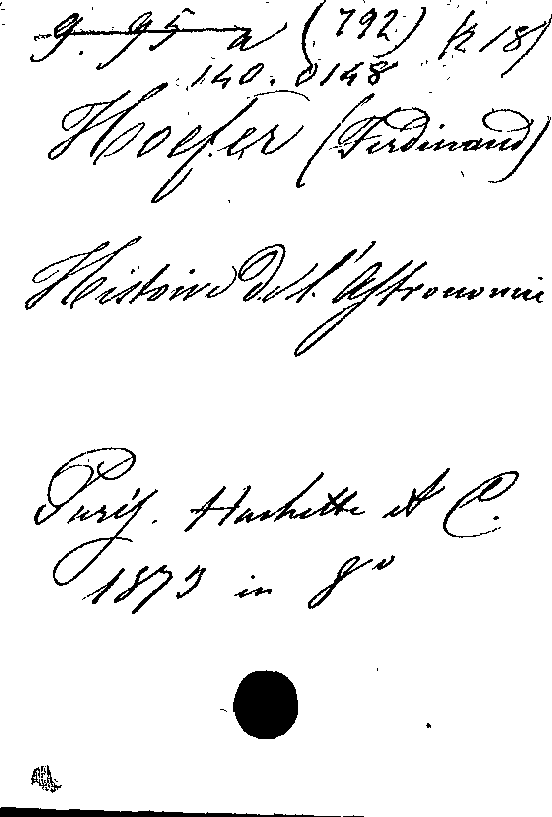 9. 95 a (792) k 18)
140.0148
Hoefer (Ferdinand)
Histoire de l'Astronomie
Paris. Hachette et C.
1873 in 8º